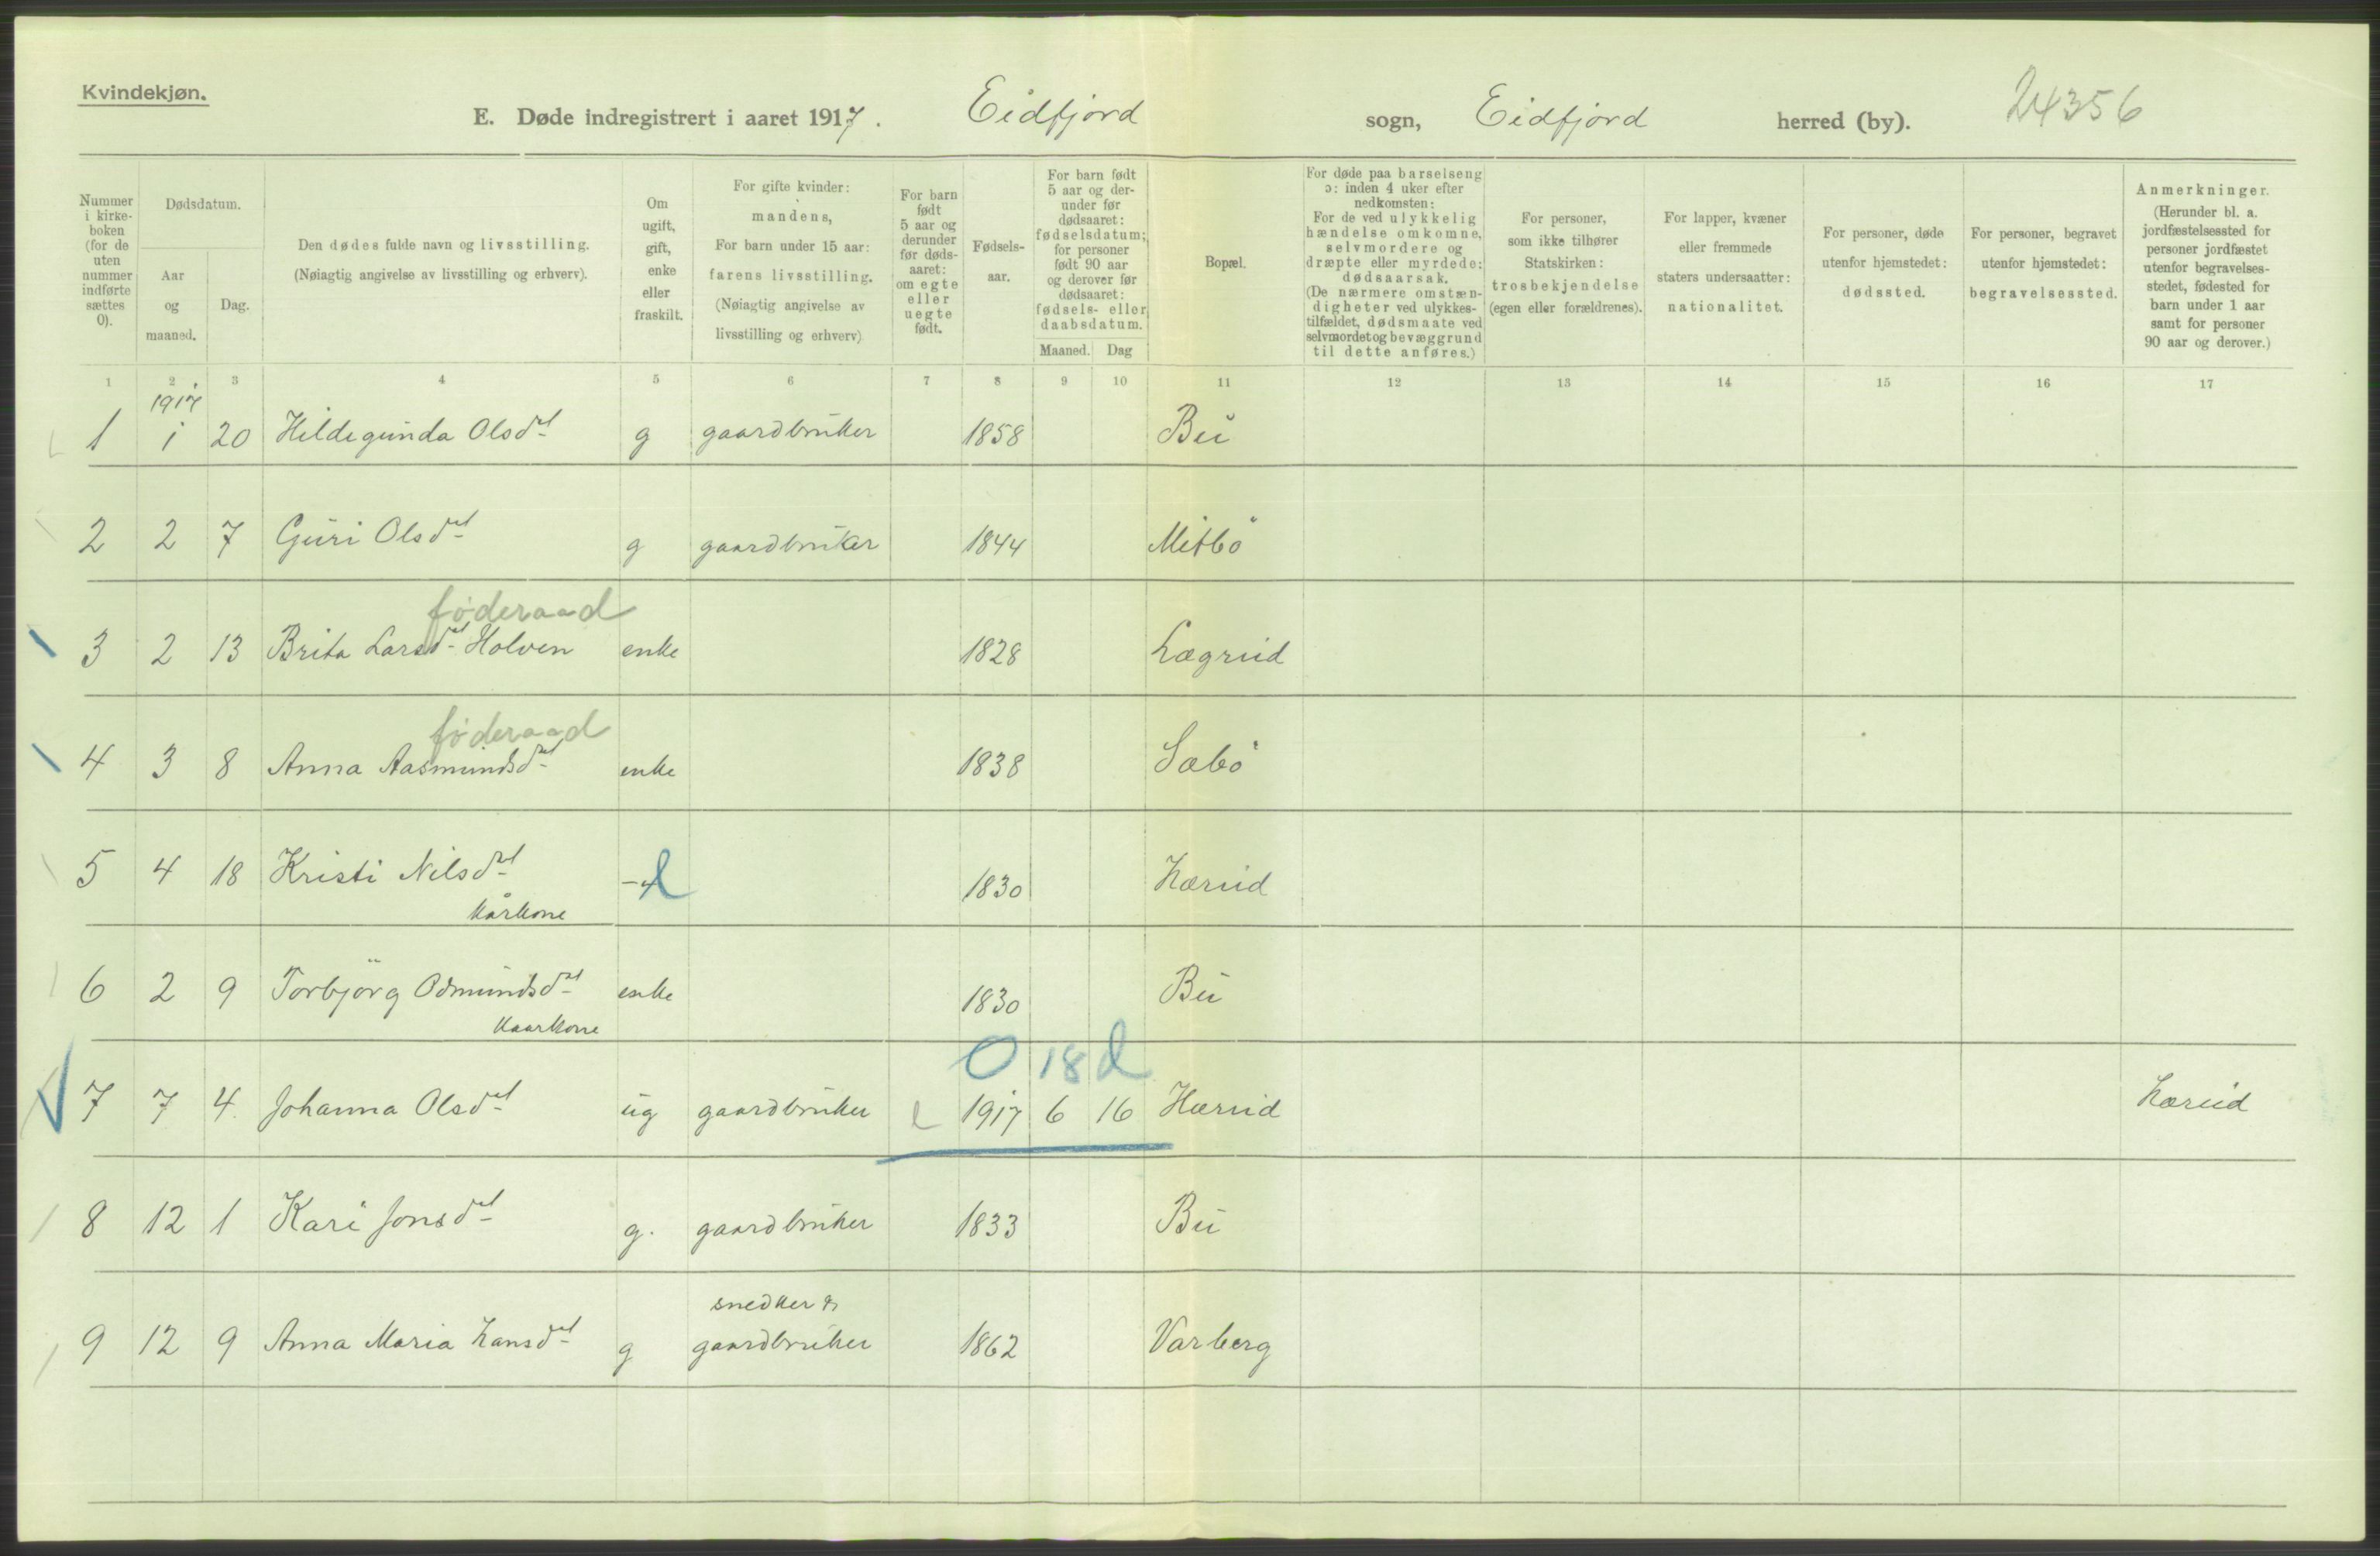 Kvindekjøn.
E. Døde indregistrert i aaret 1917. Eidfjord sogn, Eidfjord herred (by). 24356
Nummer i kirkeboken (for de uten nummer indførte sættes 0).
Dødsdatum.
Aar og maaned.
Dag.
Den dødes fulde navn og livsstilling.
(Nøiagtig angivelse av livsstilling og erhverv).
Om ugift, gift, enke eller fraskilt.
For gifte kvinder:
mandens,
For barn under 15 aar:
farens livsstilling.
(Nøiagtig angivelse av
livsstilling og erhverv)
For barn
født
5 aar og
derunder
før døds-
aaret:
om egte
eller
uegte
født.
Fødsels-
aar.
For barn født
5 aar og der-
under før
dødsaaret:
fødselsdatum;
for personer
født 90 aar
og derover før
dødsaaret:
fødsels- eller
daabsdatum.
Maaned. Dag
Bopæl.
For døde paa barselseng
ɔ: inden 4 uker efter
nedkomsten:
For de ved ulykkelig
hændelse omkomne,
selvmordere og
dræpte eller myrdede:
dødsaarsak.
(De nærmere omstæn-
digheter ved ulykkes-
tilfældet, dødsmaate ved
selvmordet og bevæggrund
til dette anføres.)
For personer,
som ikke tilhører
Statskirken:
trosbekjendelse
(egen eller forældrenes).
For lapper, kvæner
eller fremmede
staters undersaatter:
nationalitet.
For personer, døde
utenfor hjemstedet:
dødssted.
For personer, begravet
utenfor hjemstedet:
begravelsessted.
Anmerkninger.
(Herunder bl. a.
jordfæstelsessted for
personer jordfæstet
utenfor begravelses-
stedet, fødested for
barn under 1 aar
samt for personer
90 aar og derover.)
1 2 3 4 5 6 7 8 9 10 11 12 13 14 15 16 17
1917
1 1 20 Hildegunda Olsdt g gaardbruker 1858 Bu
2 2 7 Guri Olsdt g gaardbruker 1844 Mitbö
føderaad
3 2 13 Brita Larsdt Holven enke 1828 Lægreid
føderaad
4 3 8 Anna Aasmundsdt enke 1838 Sæbö
5 4 18 Kristi Nilsdt 1830 Hæreid
kårkone
6 2 9 Torbjörg Odmundsdt enke 1830 Bu
kaarkone
0 18 d
7 7 4. Johanna Olsdt ug gaardbruker e 1917 6 16 Hæreid Hæreid
8 12 1 Kari Jonsdt g. gaardbruker 1833 Bu
snedker &
9 12 9 Anna Maria Hansdt g gaardbruker 1862 Varberg